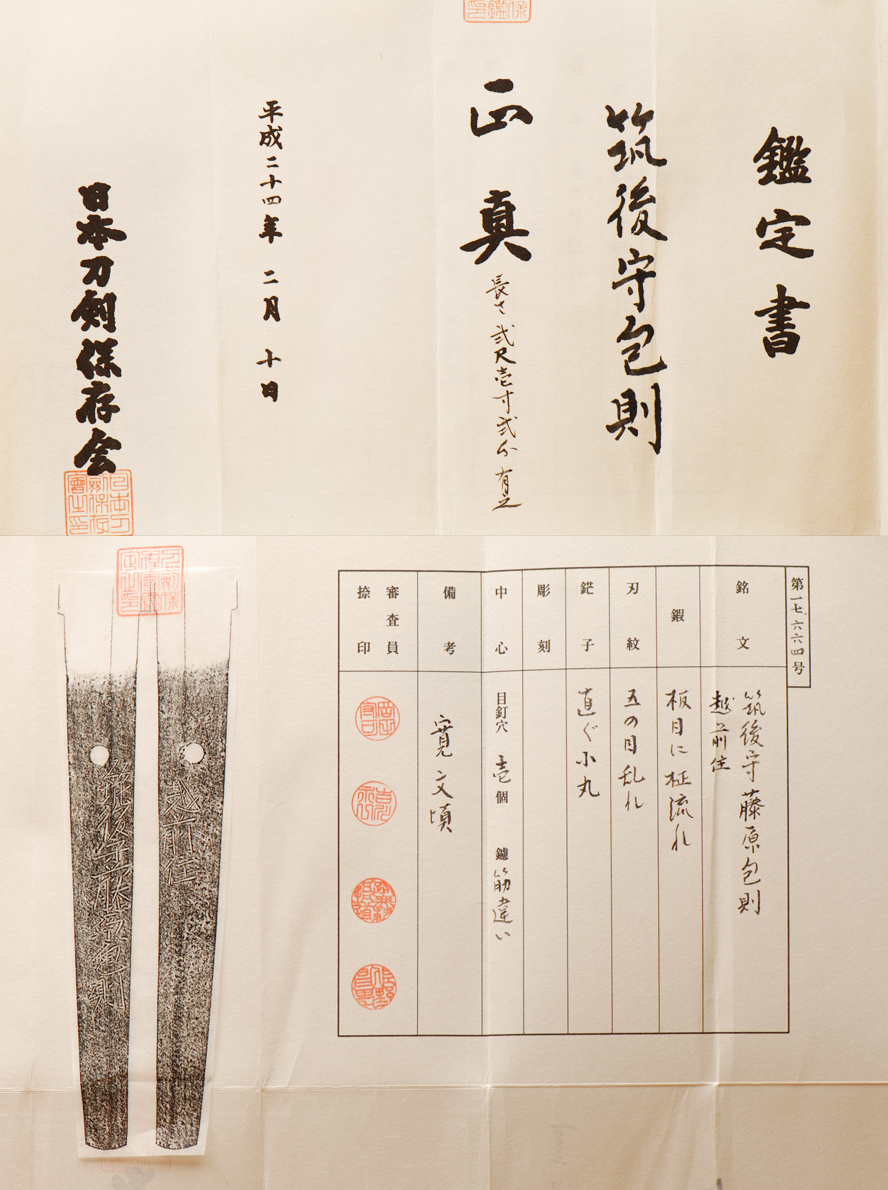 鑑定書
筑後守包則
正真
長さ弐尺壱寸弐分有之
平成二十四年二月十日
日本刀剣保存会
第一七、六六四号
銘文
筑後守藤原包則
越前住
鍜
板目に柾流れ
刃紋
五の目乱れ
鋩子
直ぐ小丸
彫刻
中心
目釘穴 壱個 鑢 筋違い
備考
寛文頃
審査員
捺印
越前住
筑後守藤原包則